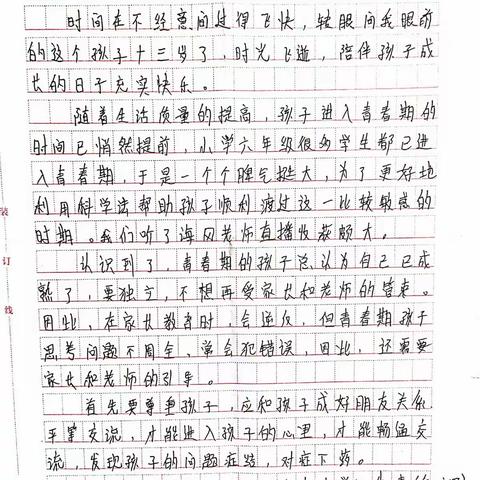 时间在不经意间过得飞快，转眼间我眼前
的这个孩子十三岁了，时光飞逝，陪伴孩子成
长的日子充实快乐。
随着生活质量的提高，孩子进入青春期的
时间已悄然提前，小学六年级很多学生都已进
入青春期，于是一个个脾气挺大，为了更好地
利用科学法帮助孩子顺利渡过这一比较敏感的
时期。我们听了海风老师直播收获颇大。
认识到了，青春期的孩子总认为自己已成
熟了，要独立，不想再受家长和老师的管束。
因此，在家长教育时，会逆反，但青春期孩子
思考问题不周全，常会犯错误，因此，还需要
家长和老师的引导。
首先要尊重孩子，应和孩子成好朋友关系
平等交流，才能进入孩子的心里，才能畅通交
流，发现孩子的问题症结，对症下药。
装
订
线